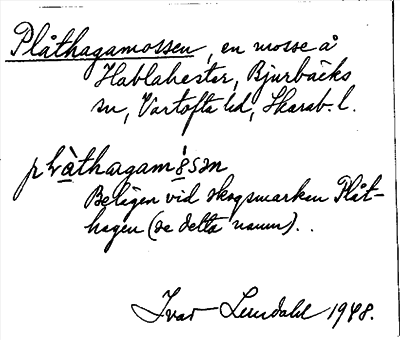 Plåthagamossen, en mosse å
Hablahester, Bjurbäcks
sn, Vartofta hd, Skarab. l.
Belägen vid skogsmarken Plåt-
hagen (se detta namn)..
Ivar Lundahl 1948.